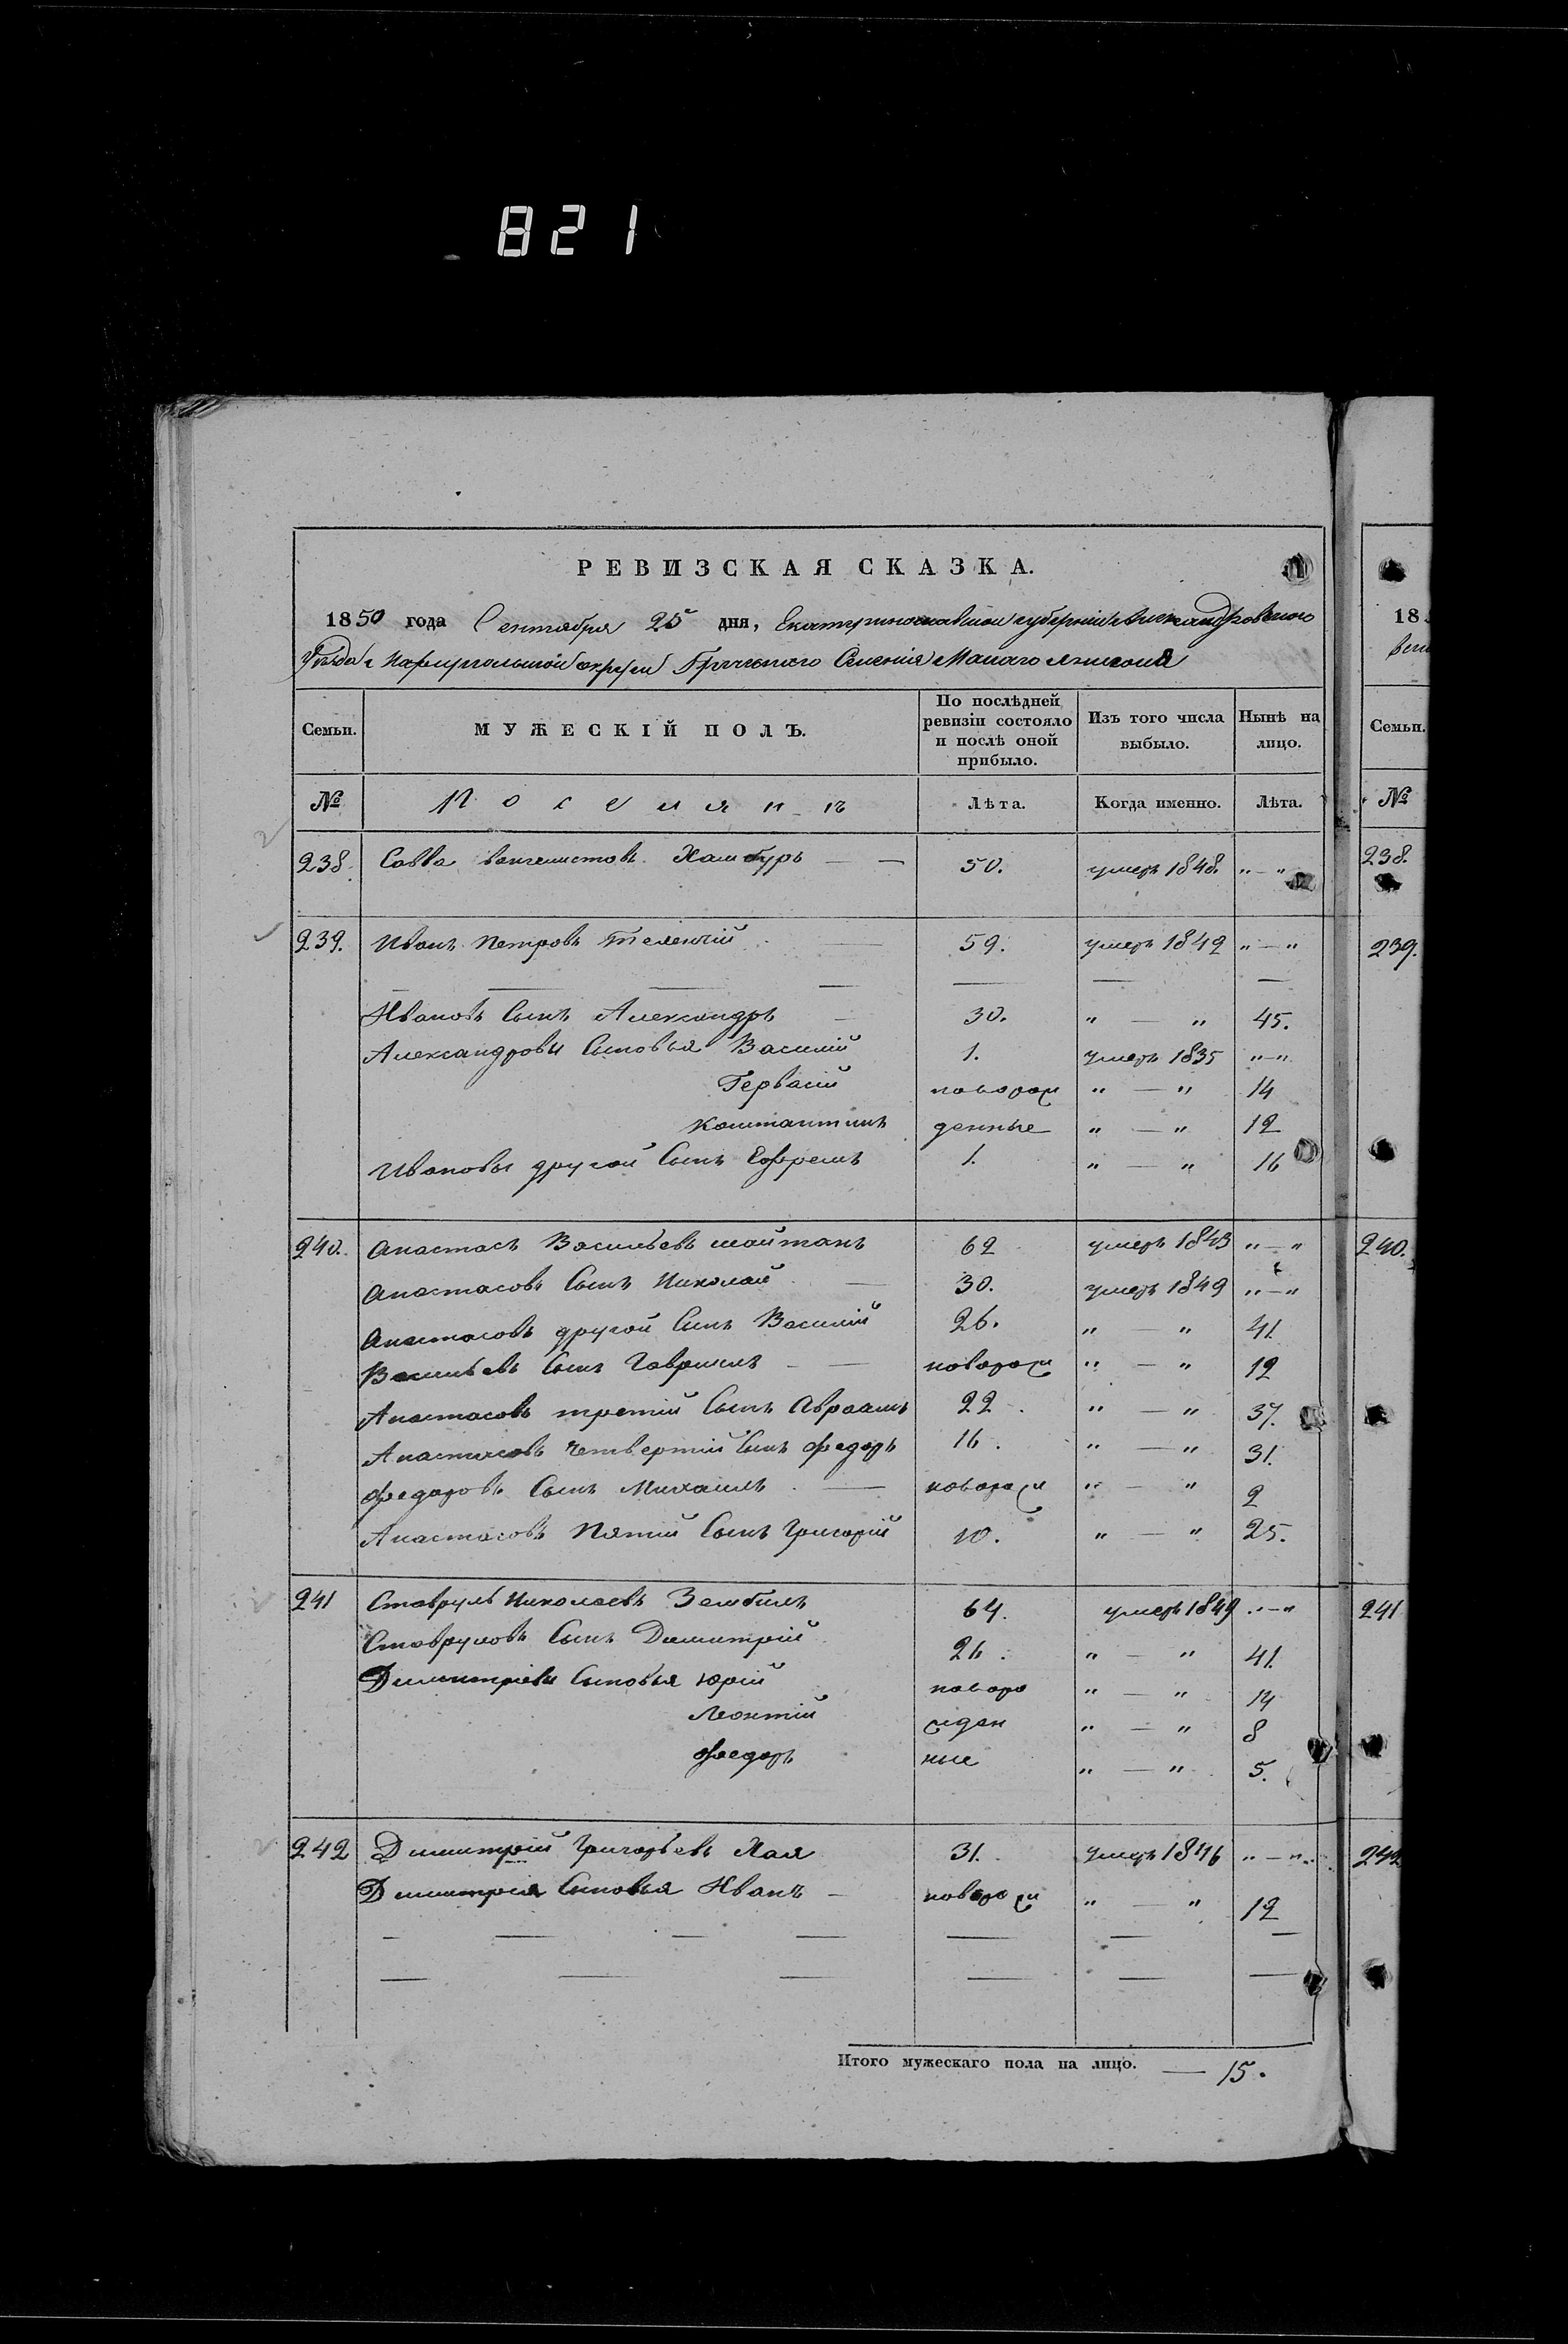 821
РЕВИЗСКАЯ СКАЗКА.
1850 года Сентября 25 дня, Екатеринославской губернии Александровского
уезда Мариупольской округи Греческого Селения Малаго Янисоля
Семьи. МУЖЕСКІЙ ПОЛЪ. По послѣдней ревизіи состояло и послѣ оной прибыло. Изъ того числа выбыло. Нынѣ на лицо.
№ Поселянъ Лѣта. Когда именно. Лѣта.
238. Савва Вангелистовъ Хамбуръ — — 50. умеръ 1848. „ — „
239. Иванъ Петровъ Теленчій — 59. умеръ 1849 „ — „
Ивановъ Сынъ Александръ — 30. „ — „ 45.
Александровы Сыновья Василій 1. умеръ 1835 „ — „
Гервасій новорож „ — „ 14
Константинъ денные „ — „ 12
Ивановы другой Сынъ Ефремъ 1. „ — „ 16
240. Анастасъ Васильевъ шайтанъ 62 умеръ 1843 „ — „
Анастасовъ Сынъ Николай — 30. умеръ 1849 „ — „
Анастасовъ другой Сынъ Василій 26. „ „ 41
Васильевъ Сынъ Гавріилъ — — новорож „ — „ 12
Анастасовъ третій Сынъ Авраамъ 22. „ — „ 37.
Анастасовъ четвертій Сынъ Федоръ 16. „ — „ 31.
Федоровъ Сынъ Михаилъ — новорож „ — „ 2
Анастасовъ Пятій Сынъ Григорій 10. „ — „ 25.
241 Ставруль Николаевъ Зембиль 64. умеръ 1849 „ — „
Ставруловъ Сынъ Димитрій 26. „ — „ 41.
Димитріевы Сыновья Юрій новоро „ — „ 14
Леонтій жден „ — „ 8
Федоръ ные „ — „ 5.
242 Димитрій Григорьевъ Хая 31. умеръ 1846 „ — „
Димитрія Сыновья Иванъ — новорож „ — „ 12
Итого мужескаго пола на лицо. — 15.
18
Семьи.
№
238.
239.
240.
241
242